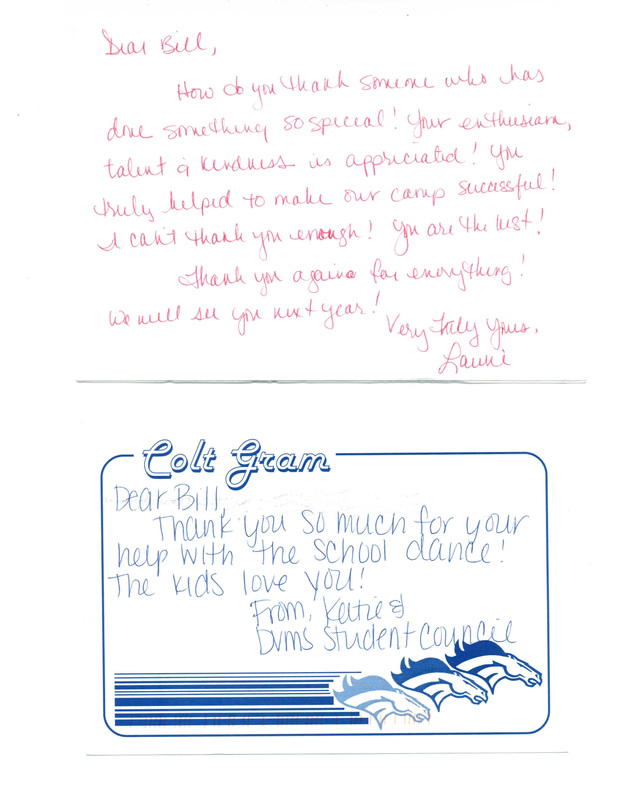 Dear Bill,
How do you thank someone who has
done something so special! Your enthusiasm,
talent & kindness is appriciated! You
truly helped to make our camp successful!
I can't thank you enough! You are the best!
Thank you again for everything!
We will see you next year!
Very Truly Yours,
Laurie
Colt Gram
Dear Bill,
Thank you so much for your
help with the school dance!
The kids love you!
From, Katie &
DVMS Student Council